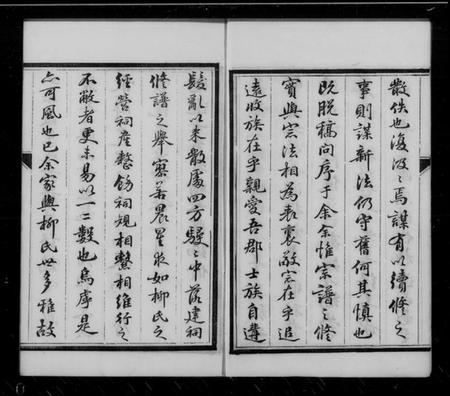 散佚也復汲汲焉謀有以續修之
事則謀新法仍守舊何其慎也
既脱稿問序于余余惟宗譜之修
實與宗法相為表裏敬宗在乎追
遠收族在乎親愛吾郡士族自遘
髮亂以來散處四方駸駸中落建祠
修譜之舉寥若晨星求如柳氏之
經營祠產整飭祠規相繫相維行之
不敝者更未易以一二數也烏虖是
亦可風也已余家與柳氏世多雅故